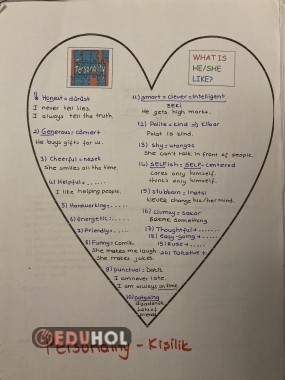 Personality
WHAT IS
HE/SHE
LIKE?
1) Honest = dürüst
I never tell lies.
I always tell the truth.
2) Generous = cömert
He buys gifts for us.
3) Cheerful = neşeli
She smiles all the time.
4) Helpful = ......
I like helping people.
5) Hardworking = ......
6) energetic : ......
7) Friendly = ......
8) Funny = Comik.
She makes me laugh
She makes jokes.
9) punctual = Dakik
I am never late.
I am always on time
10) outgoing
11) smart = clever = intelligent
zeki
He gets high marks.
12) Polite = kind ⇒ kibar
Polat is kind.
13) shy = utangaç
She can't talk in front of people.
14) SELFish = SELF-centered
Cares only himself.
thinks only himself.
15) stubborn = inatçı
NEVER change his/her mind.
16) Clumsy = sakar
17) Thoughtful = ......
18) Easy-going = ....
19) Rude = ....
20) Talkative =
EDUHOL
Personality - Kişilik